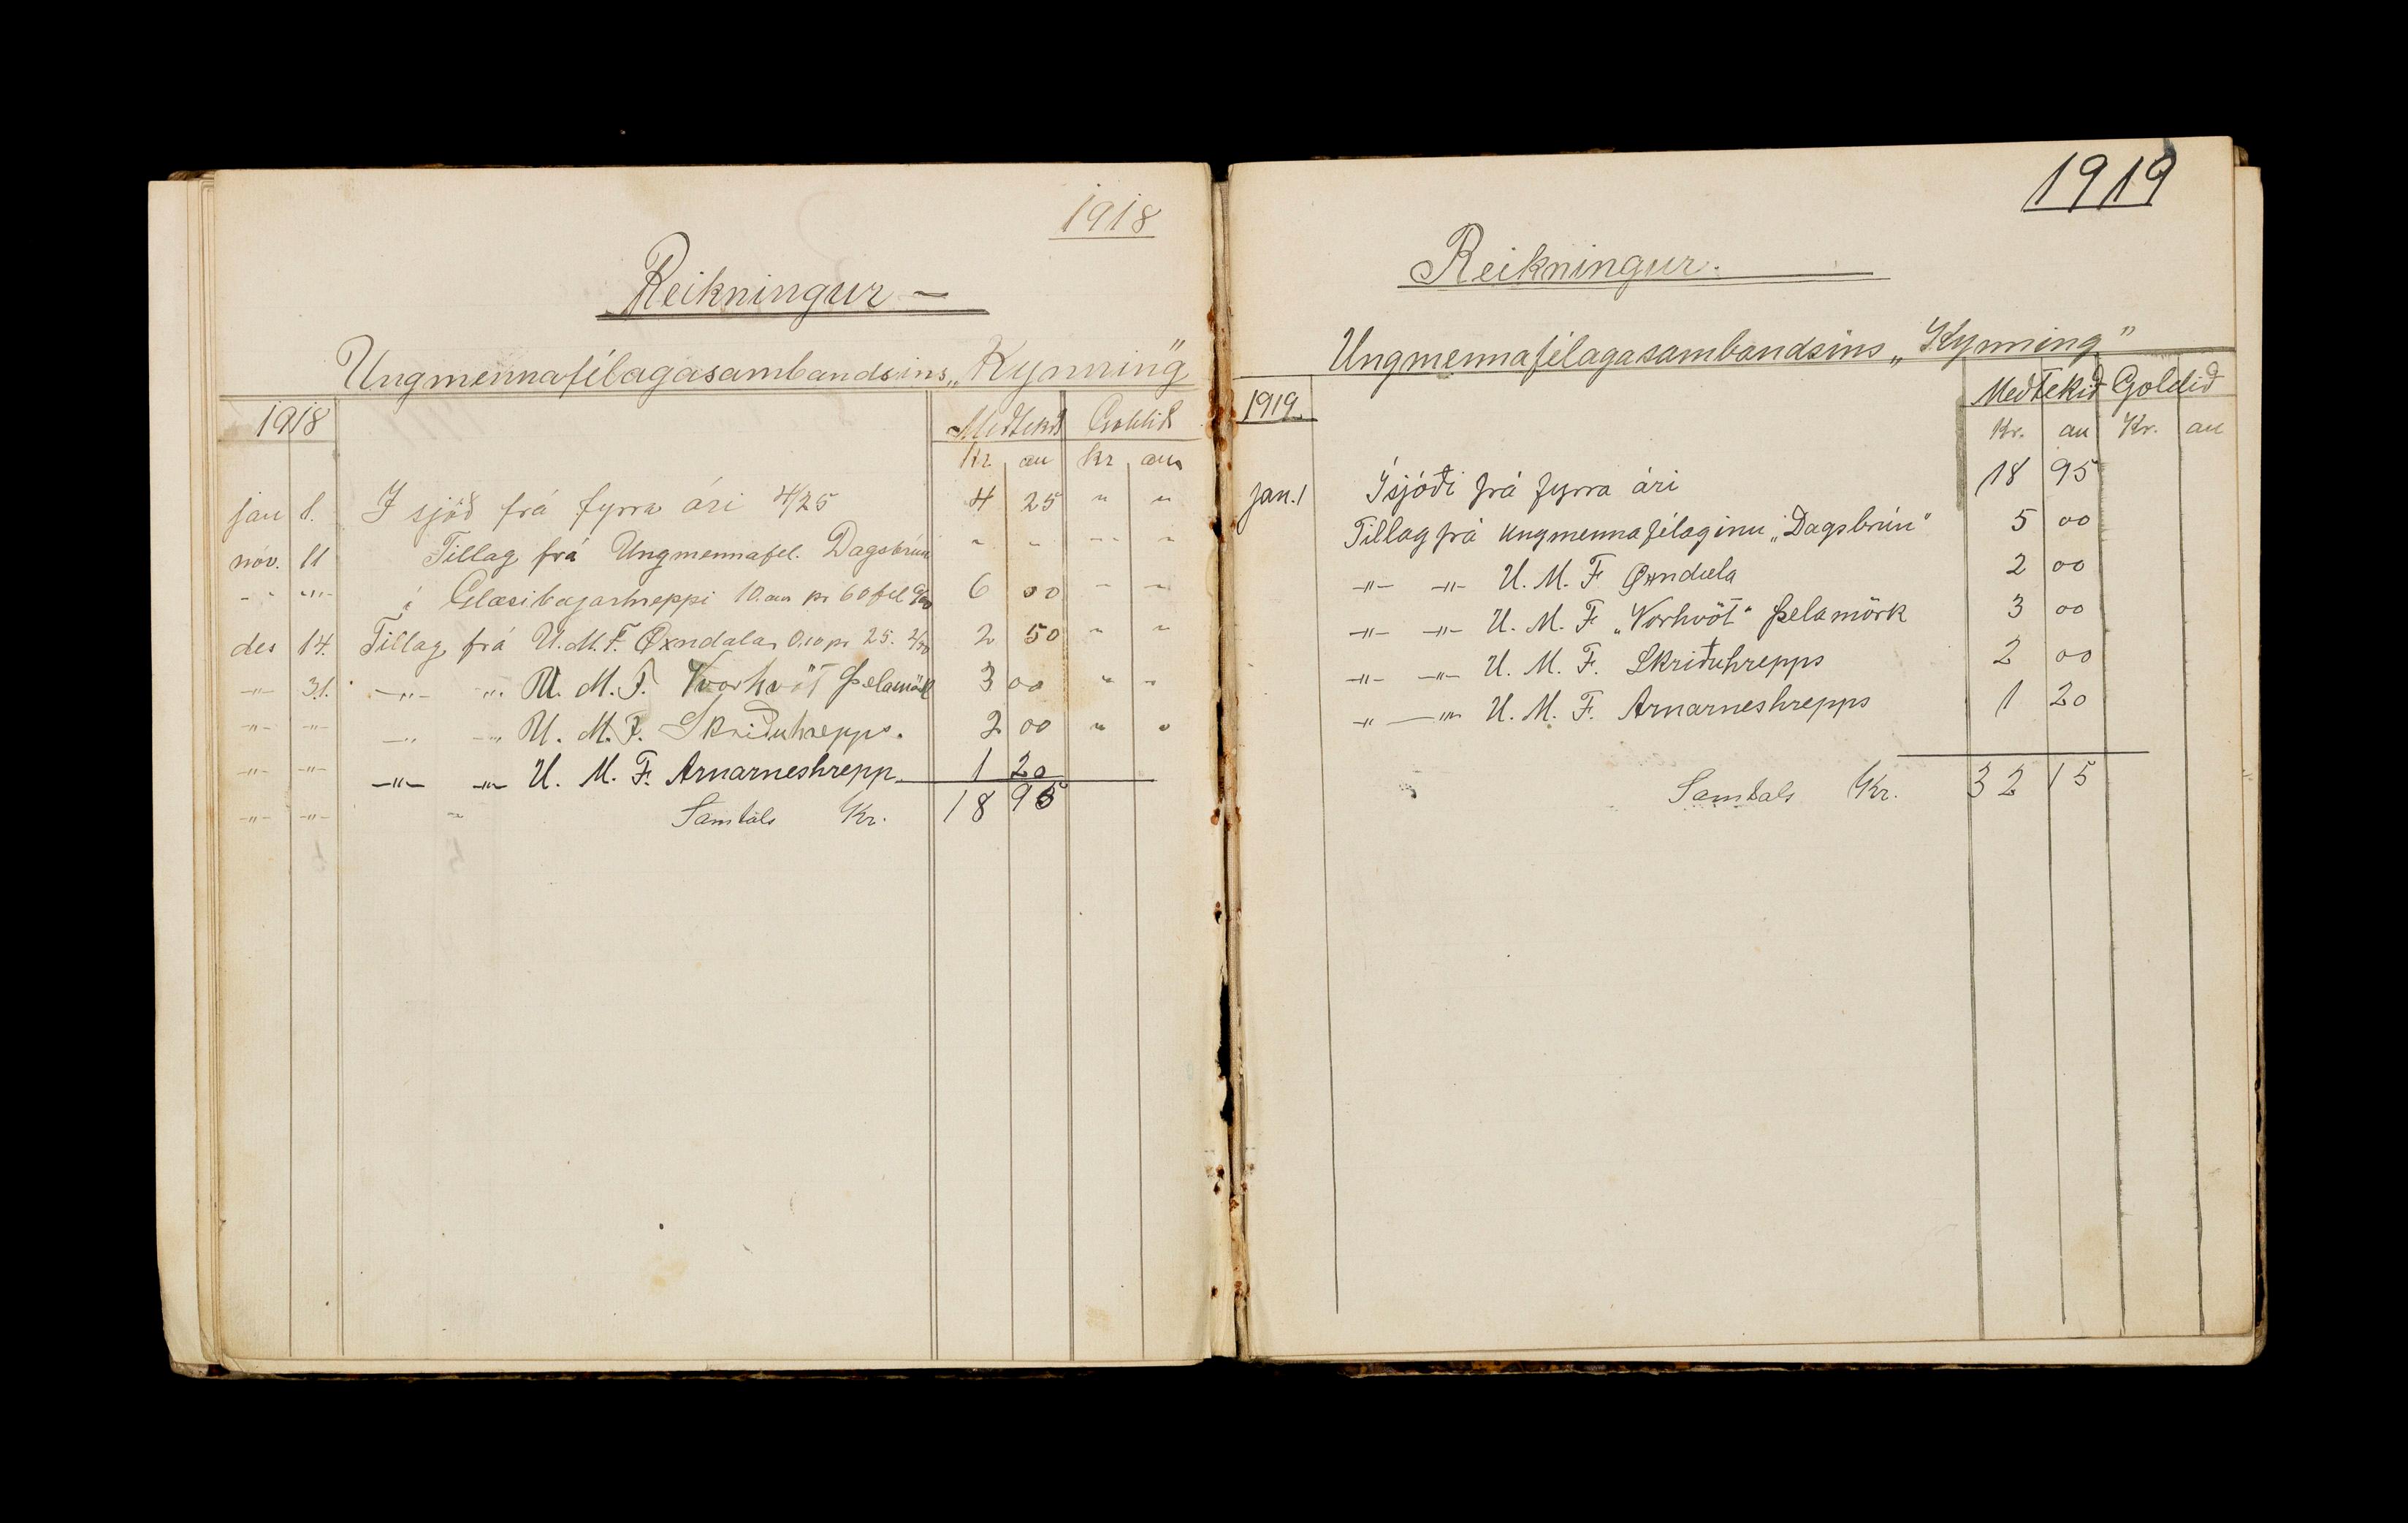 1918
Reikningur -
Ungmennafélagasambandsins „Kynning"
1918 Meðtekið Goldið
Kr. au kr au
jan 1. Í sjóð frá fyrra ári 4/25 4 25 " "
nóv. 11 Tillag frá Ungmennafel. Dagsbrún " " " "
-"- -"- í Glæsibæjarhreppi 10. au pr 60 fel 6/00 6 00 " "
des 14. Tillag frá U. M. F. Øxndæla 0.10 pr 25. 2/50 2 50 " "
-"- 31. -"- -"- U. M. F. Vorhvöt Þelamörk 3 00 " "
-"- -"- -"- -"- U. M. F. Skriðuhrepps. 2 00 " "
-"- -"- -"- -"- U. M. F. Arnarneshrepp 1 20
-"- -"- " Samtals Kr. 18 95
1919
Reikningur.
Ungmennafélagasambandsins „Kynning"
1919 Meðtekið Goldið
Kr. au Kr. au
jan. 1 Í sjóði frá fyrra ári 18 95
Tillag frá ungmennafélaginu „Dagsbrún" 5 00
-"- -"- U. M. F. Øxndæla 2 00
-"- -"- U. M. F. „Vorhvöt" Þelamörk 3 00
-"- -"- U. M. F. Skriðuhrepps 2 00
-"- -"- U. M. F. Arnarneshrepps 1 20
Samtals Kr. 32 15